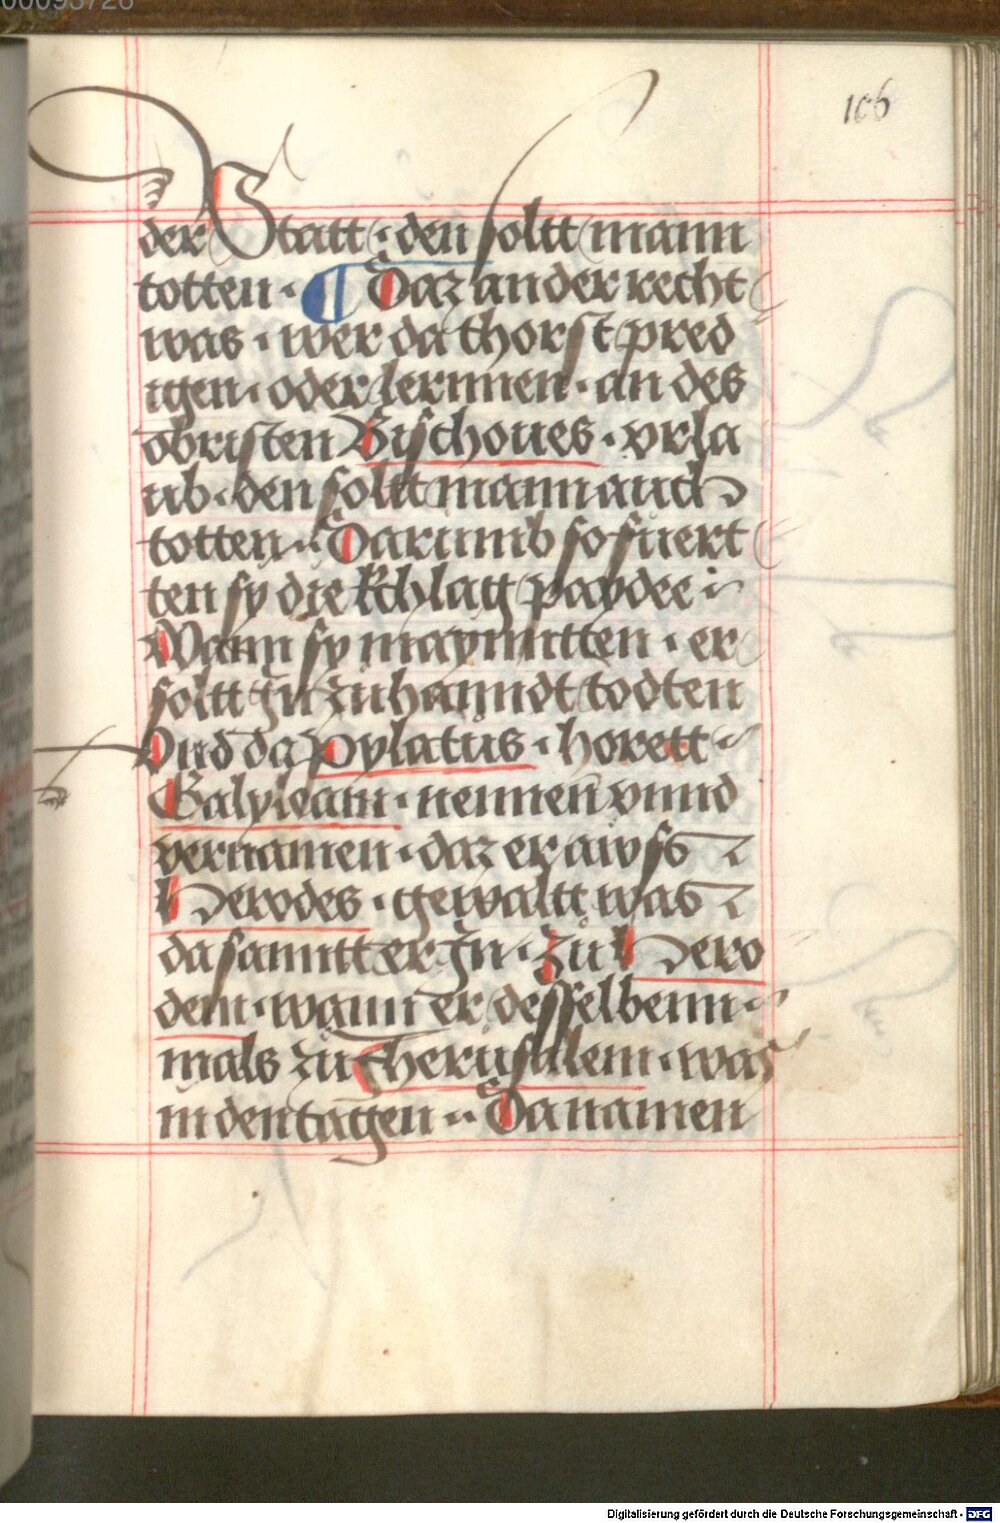 00095726
106
der Statt · den soltt mann
totten · ¶ Daz ander recht
was · wer da thorst pred
igen · oder lernnen · an des
obristen Bischoues · vrla
ub · den soltt mann auch
totten · Darumb so fuert
ten sy die khlag paydee ·
Wann sy maynntten · er
soltt Jn zuhanndt todten
Vnd da pylatus · horett
Galyleam · nennen vnnd
vernamen · daz er awss
Herodes · gewaltt was
da sanntt er Jn · zu Hero
dem · wann er desselbenn
mals zu Jherusalem · was
in den tagen · Da namen
Digitalisierung gefördert durch die Deutsche Forschungsgemeinschaft - DFG